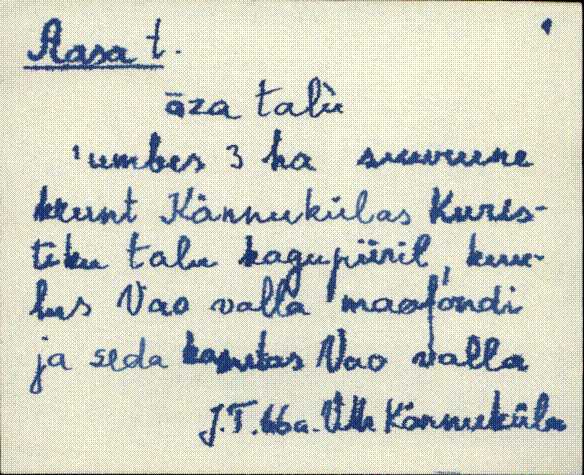 Aasa t.
āza talù
'umbes 3 ha suurune
krunt Kännukülas Kuris-
tiku talu kagupiiril, kuu-
lus Vao valla maafondi
ja seda kasutas Vao valla
J.T. 66a. V-M Kännuküla